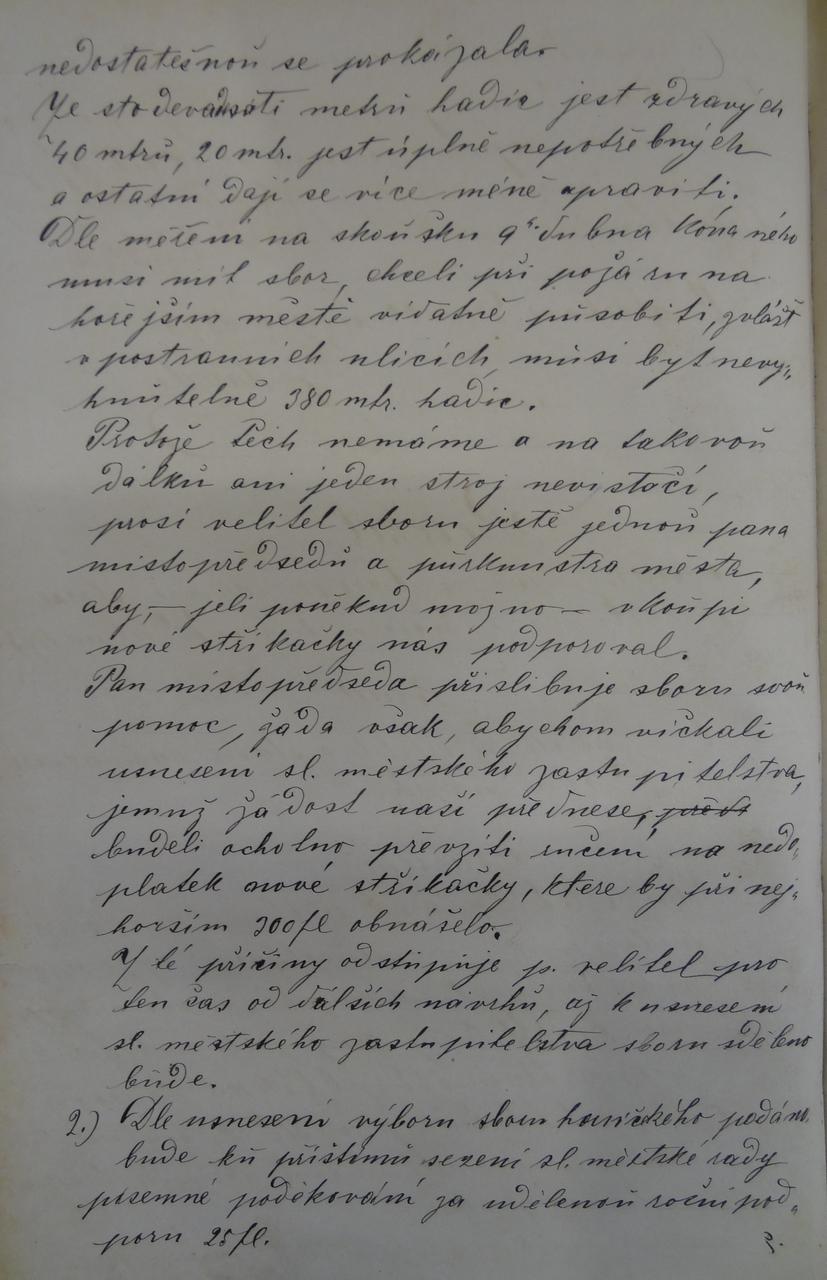 nedostatešnoů se prokázala.
Ze stodevadesáti metrů hadic jest zdravých
40 mtrů, 20 mtr. jest úplně nepotřebných
a ostatní dají se více méně opraviti.
Dle měření na skoušku 9ho dubna kónaného
musí mít sbor, chceli při požáru na
hořejším městě vidatně působiti, zvlášť
v postranních ulicích, músí byt nevy„
hnůtelně 380 mtr. hadic.
Protože těch nemáme a na takovoů
dálků ani jeden stroj nevistačí,
prosí velitel sboru jestě jednoů pana
místopředsedů a půrkmistra města,
aby, – jeli poněkud možno – vkoůpi
nové stříkačky nás podporoval.
Pan místopředseda přislibuje sboru svoů
pomoc, žáda však, abychom vičkali
usnesení sl. městského zastupitelstva,
jemuž žádost naší přednese, předs
budeli ochotno převzíti ručení na nedo„
platek nové stříkačky, ktere by při nej„
horším 300 fl obnášelo.
Z té příčiny odstupuje p. velitel pro
ten čas od dálších návrhů, až k usnesení
sl. městského zastupitelstva sboru sděleno
bůde.
2.) Dle usnesení výboru sboru hasičského podáno
bude ků příštímů sezení sl. městské rady
písemné poděkování za udělenoů roční pod„
poru 25 fl.
3.